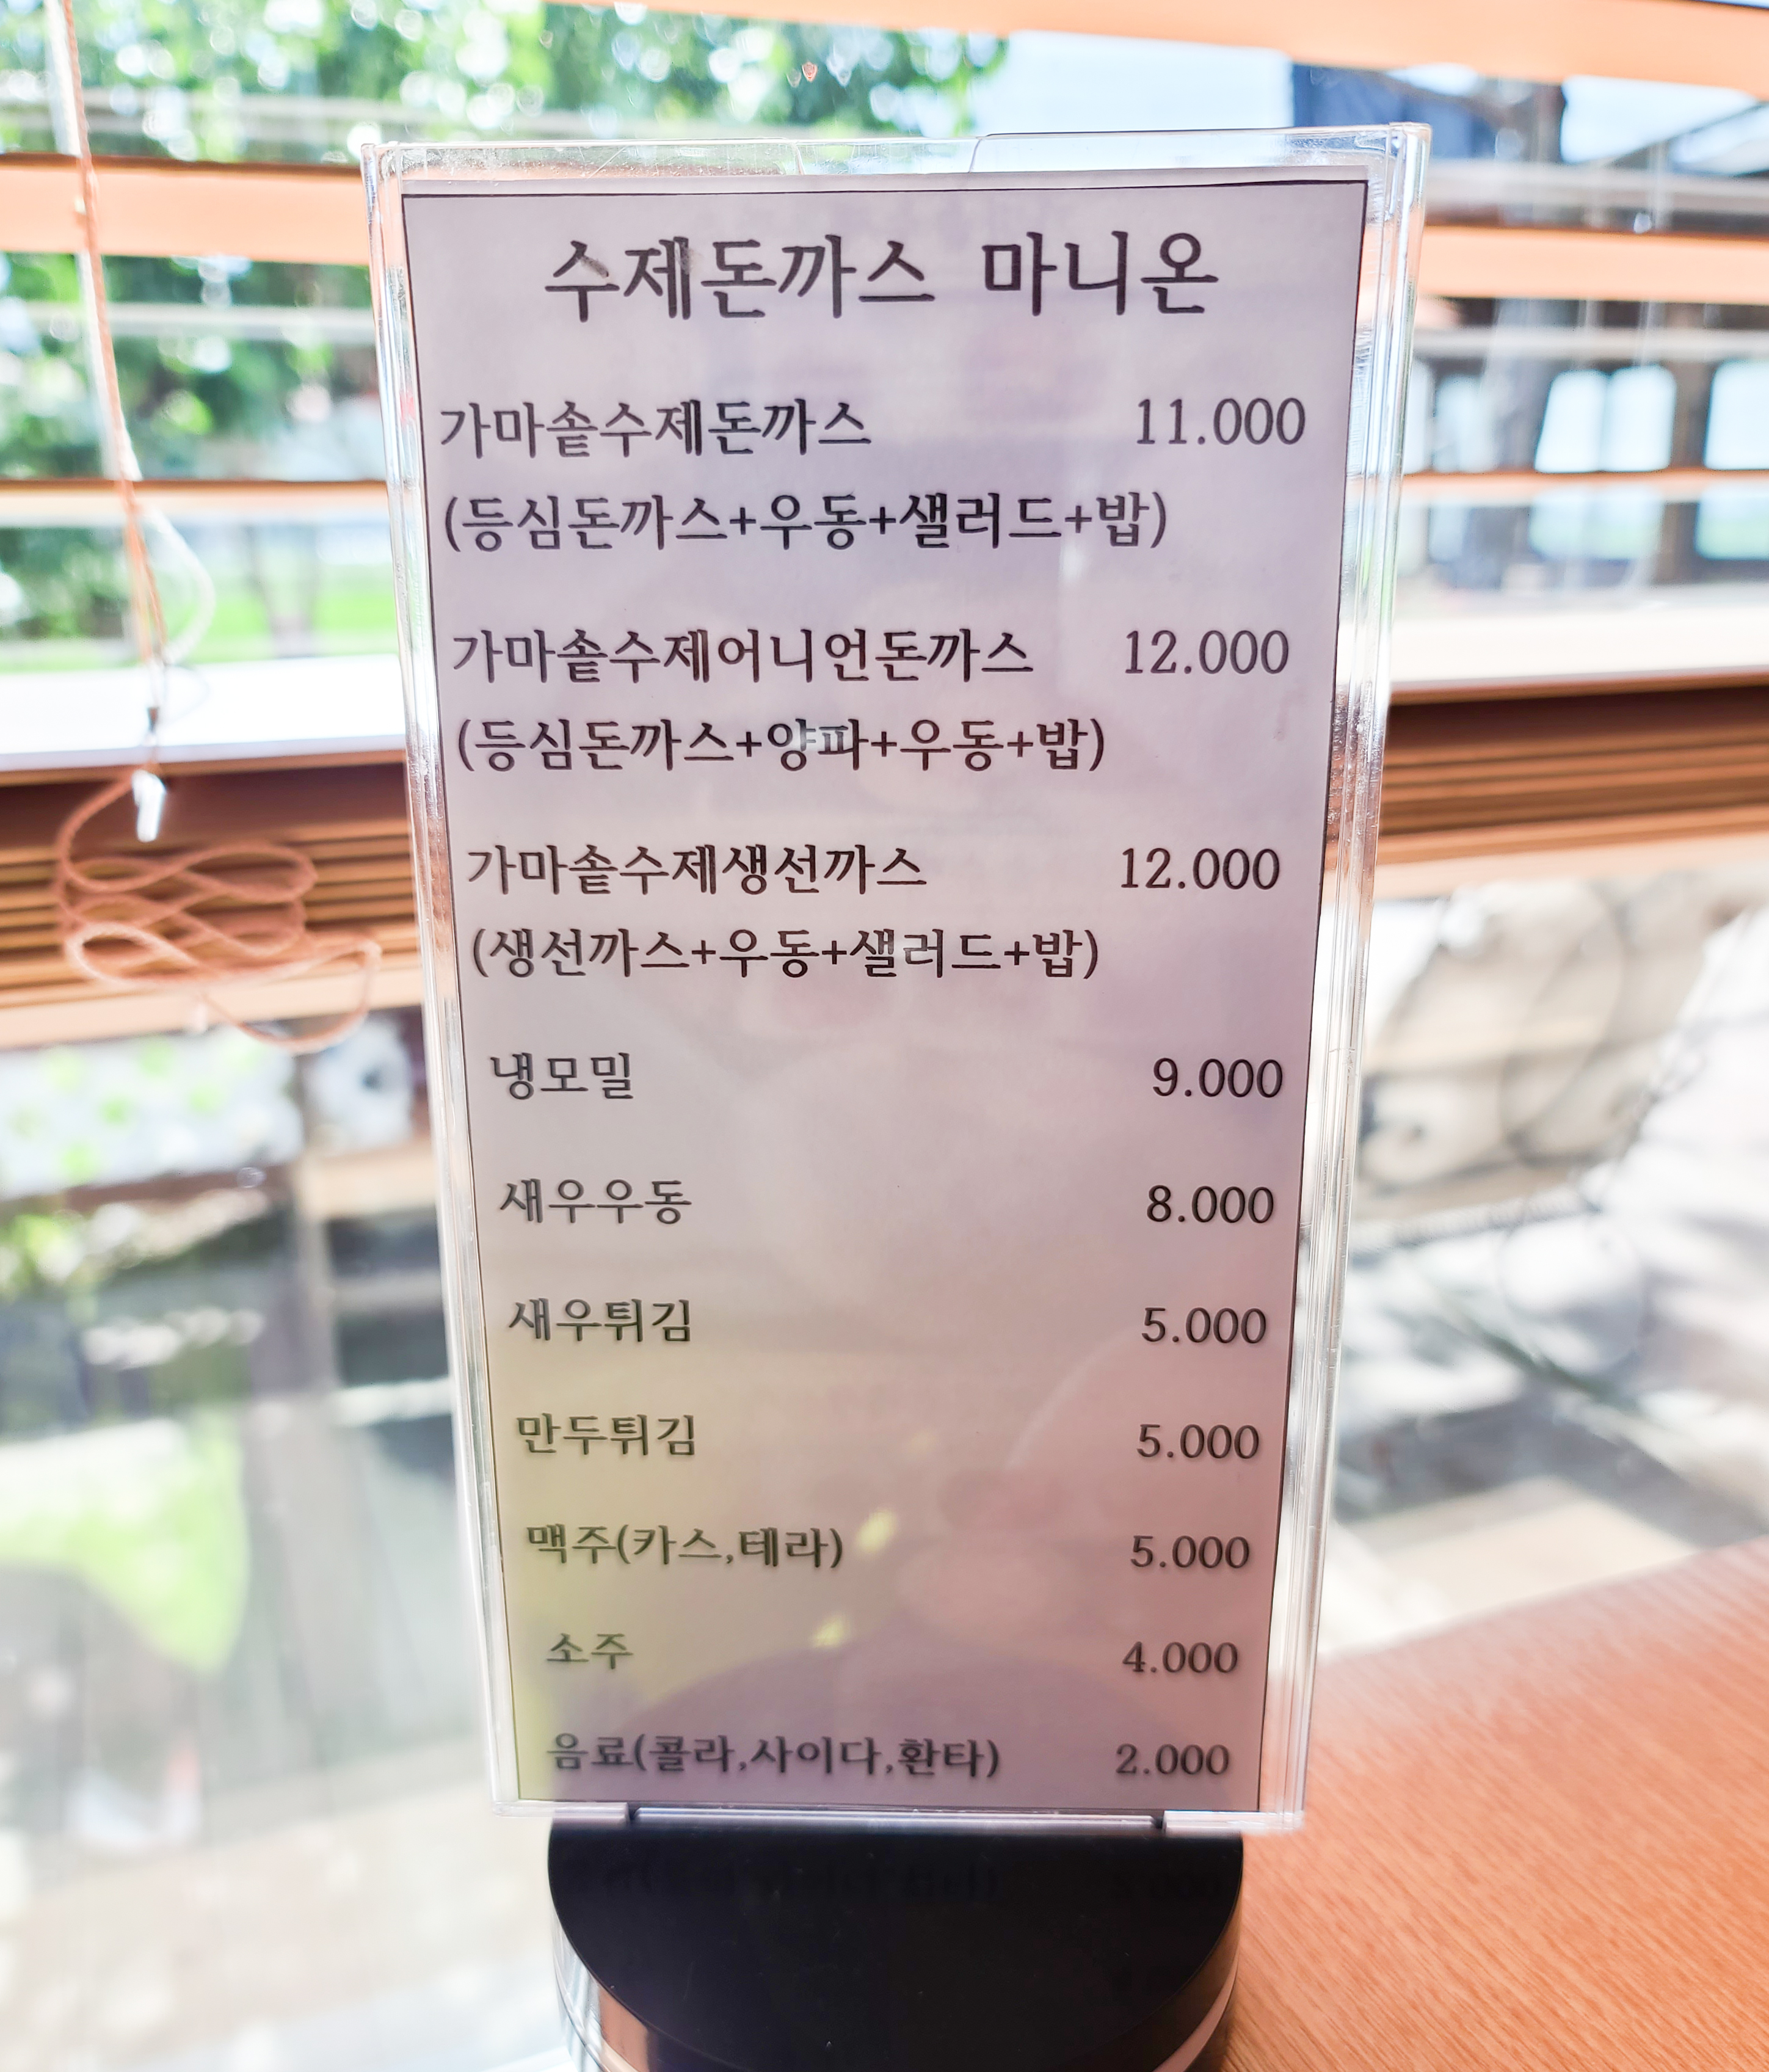 수제돈까스 마니온
가마솥수제돈까스 11.000
(등심돈까스+우동+샐러드+밥)
가마솥수제어니언돈까스 12.000
(등심돈까스+양파+우동+밥)
가마솥수제생선까스 12.000
(생선까스+우동+샐러드+밥)
냉모밀 9.000
새우우동 8.000
새우튀김 5.000
만두튀김 5.000
맥주(카스,테라) 5.000
소주 4.000
음료(콜라,사이다,환타) 2.000